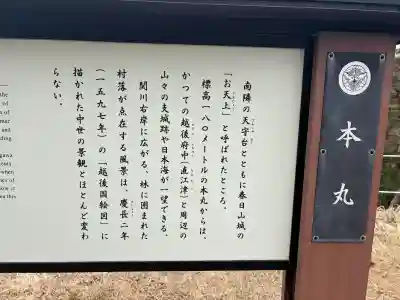 本丸
南隣の天守台とともに春日山城の
「お天上」と呼ばれたところ。
標高一八〇メートルの本丸からは、
かつての越後府中(直江津)と周辺の
山々の支城跡や日本海が一望できる。
関川右岸に広がる、林に囲まれた
村落が点在する風景は、慶長二年
(一五九七年)の「越後国絵図」に
描かれた中世の景観とほとんど変わ
らない。